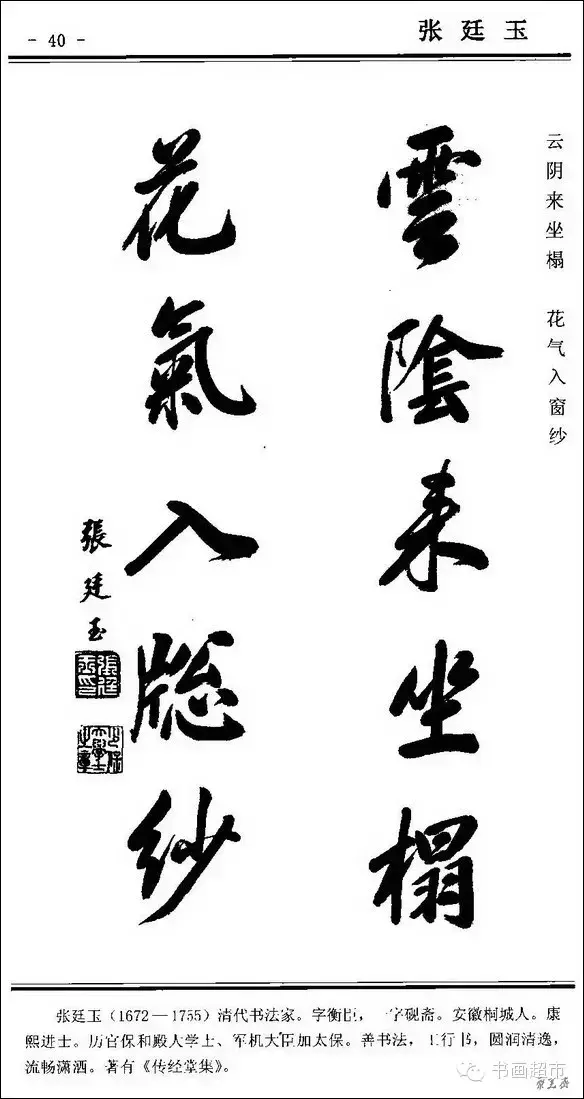 - 40 -
张廷玉
云阴来坐榻 花气入窗纱
雲陰来坐榻
花氣入牕紗
張廷玉
張廷玉印
张廷玉（1672—1755）清代书法家。字衡臣，一字砚斋。安徽桐城人。康
熙进士。历官保和殿大学士、军机大臣加太保。善书法，工行书，圆润清逸，
流畅潇洒。著有《传经堂集》。
书画超市